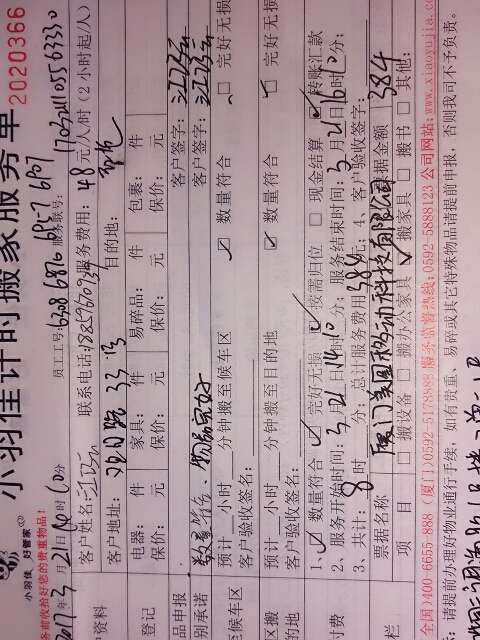 小羽佳计时搬家服务单 2020366
小羽佳 好管家
务请收拾好您的贵重物品!
员工工号: 6308 6816 6957 6707 服务联号: 170321110556330
2017年3月21日 时10分
联系电话: 服务费用: 48元/人/时(2小时起/人)
客户姓名: 江巧云
客户地址: 33-13 目的地:
资料
电器: 件 家具: 件 易碎品: 件 包裹: 件
保价: 元 保价: 元 保价: 元 保价: 元
登记
品申报 客户签字: 江巧云
别承诺 数量符合、物品完好 客户签字: 江巧云
至候车区 预计 小时 分钟搬至候车区 ☑ 数量符合 完好无损
客户验收签名:
区搬 预计 小时 分钟搬至目的地 ☑ 数量符合 完好无损
的地 客户验收签名:
1、☑ 数量符合 ☑ 完好无损 ☑ 按需归位 □ 现金结算 ☑ 转账汇款
2、服务开始时间: 3月21日14时10分; 服务结束时间: 3月21日16时10分;
付费 3、共计: 8时 分; 总计服务费用384元; 4、客户验收签字:
票据名称 厦门美图移动科技有限公司 票据金额 384
栏 项目 □ 搬设备 □ 搬办公家具 ☑ 搬家具 □ 搬书 □ 其他:
全国)400-6655-888 (厦门)0592-5178885 服务监督热线:0592-5888123 公司网站:www.xiaoyujia.co
:请提前办理好物业通行手续, 如有贵重、易碎或其它特殊物品请提前申报, 否则我司不予负责。